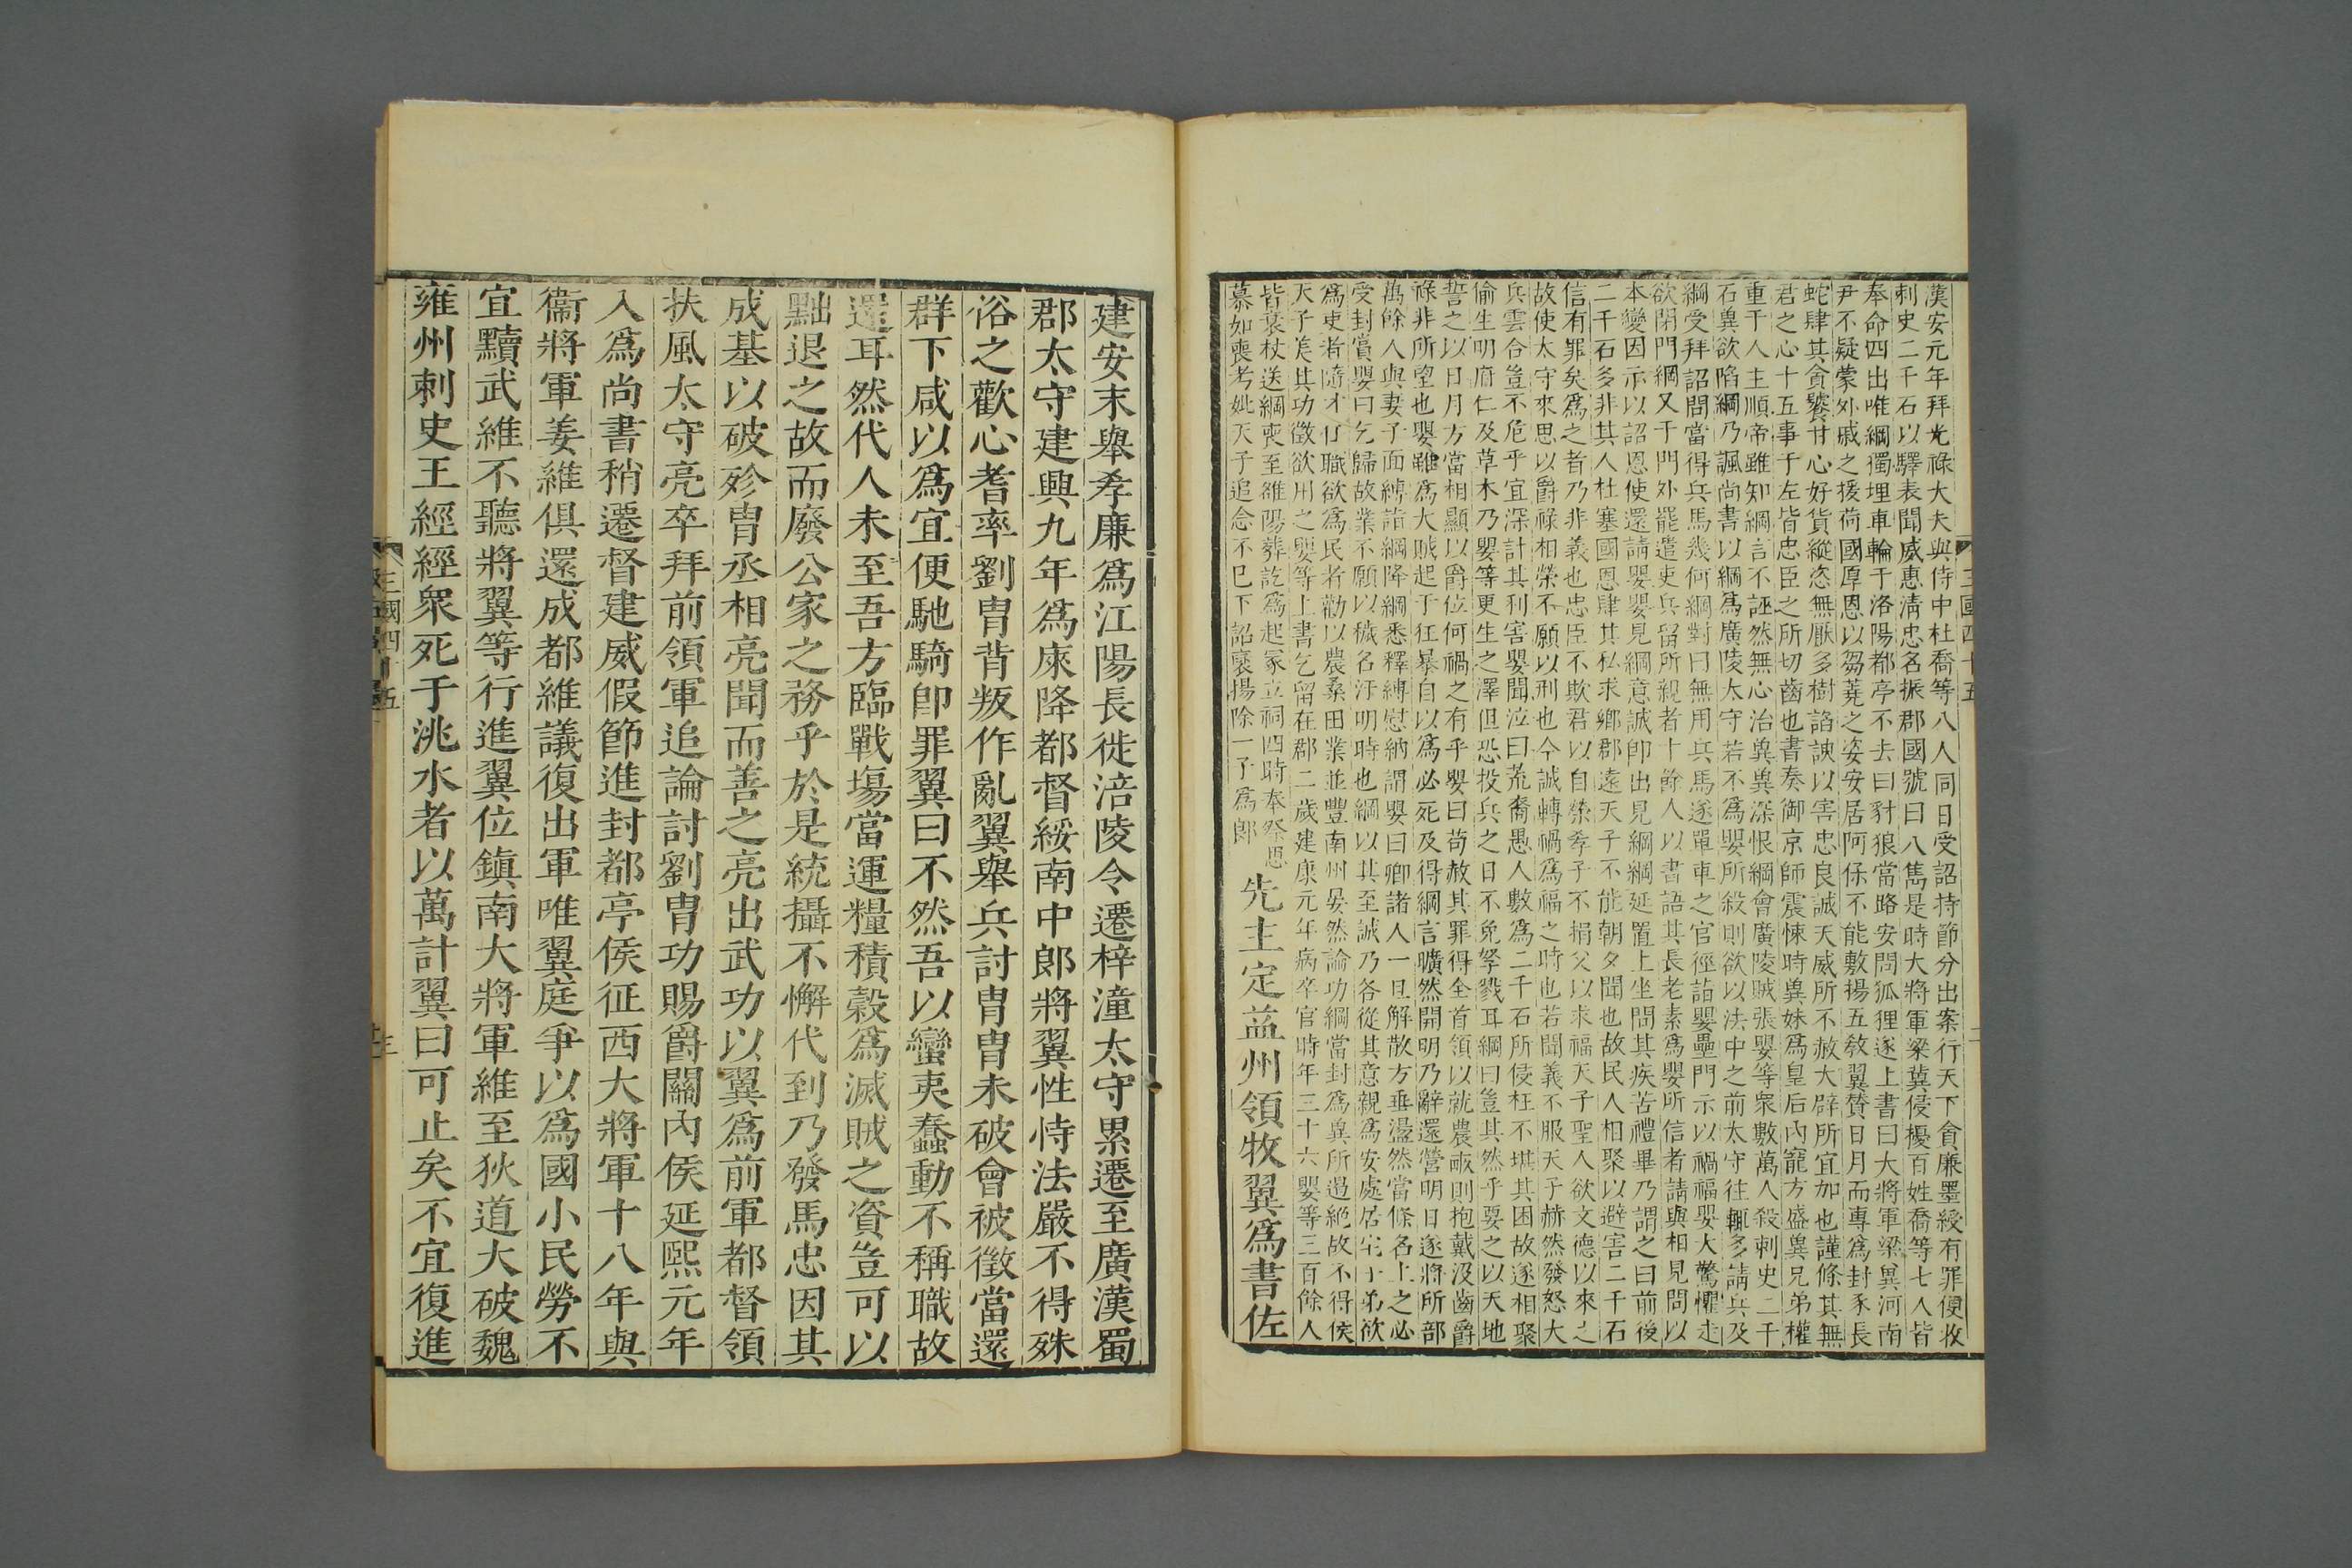 漢安元年拜光祿大夫與侍中杜喬等八人同日受詔持節分出案行天下貪廉墨綬有罪便收
刺史二千石以驛表聞威惠清忠名振郡國號曰八雋是時大將軍梁冀侵擾百姓喬等七人皆
奉命四出唯綱獨埋車輪于洛陽都亭不去曰豺狼當路安問狐狸遂上書曰大將軍梁冀河南
尹不疑蒙外戚之援荷國厚恩以芻蕘之姿安居阿保不能敷揚五敎翼贊日月而專爲封豕長
蛇肆其貪饕甘心好貨縱恣無厭多樹諂諛以害忠良誠天威所不赦大辟所宜加也謹條其無
君之心十五事于左皆忠臣之所切齒也書奏御京師震悚時冀妹爲皇后內寵方盛冀兄弟權
重于人主順帝雖知綱言不誣然無心治冀冀深恨綱會廣陵賊張嬰等衆數萬人殺刺史二千
石冀欲陷綱乃諷尚書以綱爲廣陵太守若不爲嬰所殺則欲以法中之前太守往輒多請兵及
綱受拜詔問當得兵馬幾何綱對曰無用兵馬遂單車之官徑詣嬰壘門示以禍福嬰大驚懼走
欲閉門綱又于門外罷遣吏兵留所親者十餘人以書語其長老素爲嬰所信者請與相見問以
本變因示以詔恩使還請嬰嬰見綱意誠卽出見綱綱延置上坐問其疾苦禮畢乃謂之曰前後
二千石多非其人杜塞國恩肆其私求鄉郡遠天子不能朝夕聞也故民人相聚以避害二千石
信有罪矣爲之者乃非義也忠臣不欺君以自榮孝子不捐父以求福天子聖人欲文德以來之
故使太守來思以爵祿相榮不願以刑也今誠轉禍爲福之時也若聞義不服天子赫然發怒大
兵雲合豈不危乎宜深計其利害嬰聞泣曰荒裔愚人數爲二千石所侵枉不堪其困故遂相聚
偷生明府仁及草木乃嬰等更生之澤但恐投兵之日不免孥戮耳綱曰豈其然乎要之以天地
誓之以日月方當相顯以爵位何禍之有乎嬰曰苟赦其罪得全首領以就農畝則抱戴沒齒爵
祿非所望也嬰雖爲大賊起于狂暴自以爲必死及得綱言曠然開明乃辭還營明日遂將所部
萬餘人與妻子面縛詣綱降綱悉釋縛慰納謂嬰曰卿諸人一旦解散方垂盪然當條名上之必
受封賞嬰曰乞歸故業不願以穢名汙明時也綱以其至誠乃各從其意親爲安處居宅子弟欲
爲吏者隨才任職欲爲民者勸以農桑田業並豐南州晏然論功綱當封爲冀所遏絕故不得侯
天子美其功徵欲用之嬰等上書乞留在郡二歲建康元年病卒官時年三十六嬰等三百餘人
皆衰杖送綱喪至雒陽葬訖爲起冢立祠四時奉祭思
慕如喪考妣天子追念不已下詔襃揚除一子爲郞
先主定益州領牧翼爲書佐
三國四十五
二
建安末舉孝廉爲江陽長徙涪陵令遷梓潼太守累遷至廣漢蜀
郡太守建興九年爲庲降都督綏南中郞將翼性恃法嚴不得殊
俗之歡心耆率劉胄背叛作亂翼舉兵討胄胄未破會被徵當還
群下咸以爲宜便馳騎卽罪翼曰不然吾以蠻夷蠢動不稱職故
還耳然代人未至吾方臨戰場當運糧積穀爲滅賊之資豈可以
黜退之故而廢公家之務乎於是統攝不懈代到乃發馬忠因其
成基以破殄胄丞相亮聞而善之亮出武功以翼爲前軍都督領
扶風太守亮卒拜前領軍追論討劉胄功賜爵關內侯延熙元年
入爲尚書稍遷督建威假節進封都亭侯征西大將軍十八年與
衞將軍姜維俱還成都維議復出軍唯翼庭爭以爲國小民勞不
宜黷武維不聽將翼等行進翼位鎮南大將軍維至狄道大破魏
雍州刺史王經經衆死于洮水者以萬計翼曰可止矣不宜復進
三國四十五
三